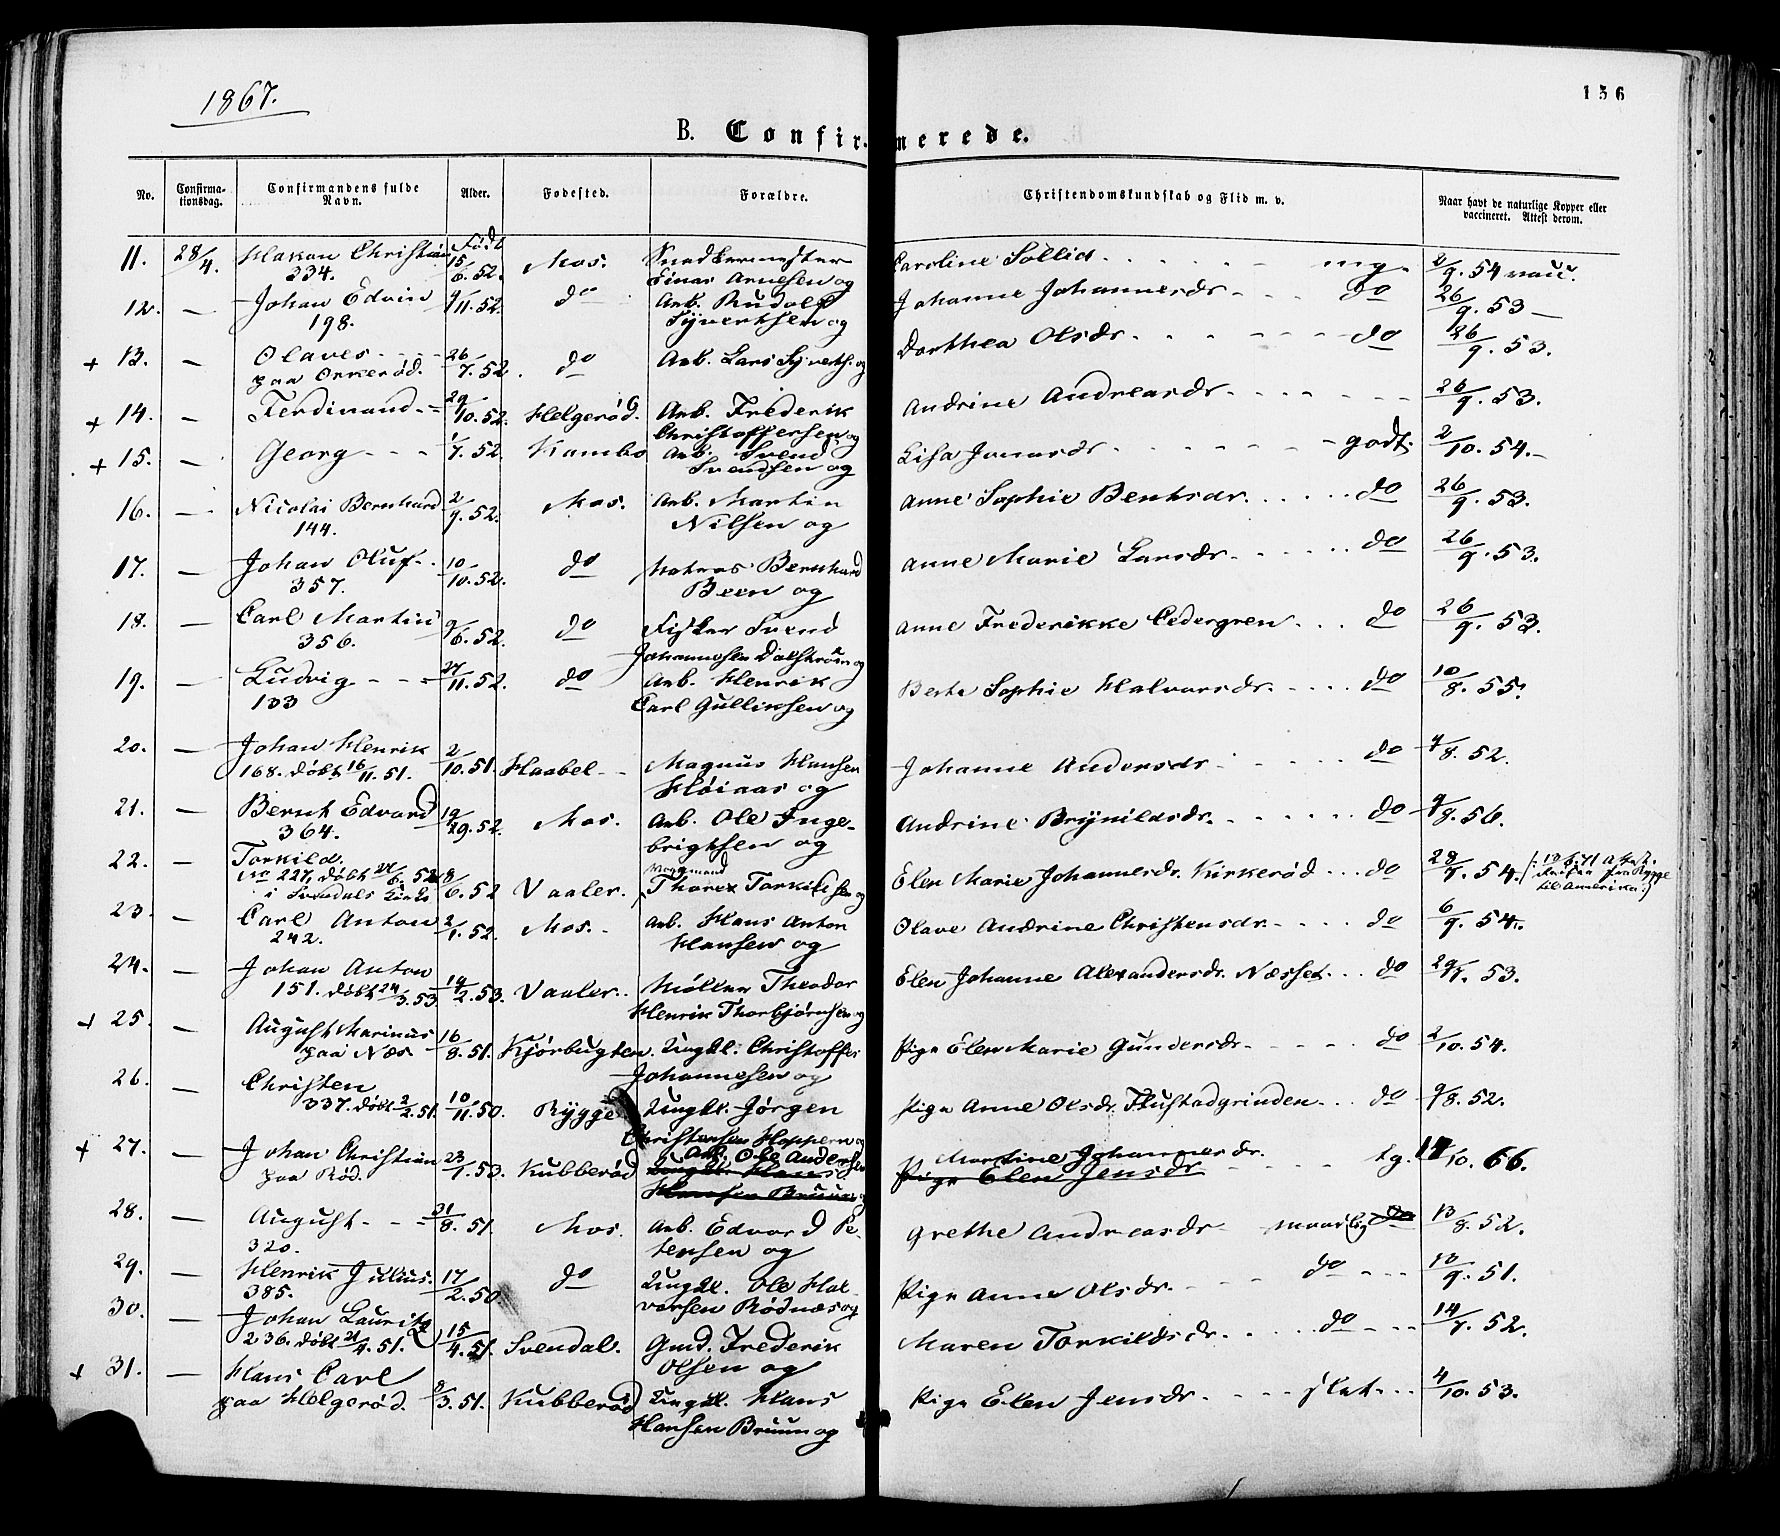 1867.
156
B. Confirmerede.
No.
Confirma-
tionsdag.
Confirmandens fulde
Navn.
Alder.
Fødested.
Forældre.
Christendomskundskab og Flid m. v.
Naar havt de naturlige Kopper eller
vaccineret. Attest derom.
11. 28/4. Hakon Christian Født 15/6.52. Mos. Snedkermester Caroline Sollid mg. 2/9.54 vacc.
334. Einar Arnesen og
12. — Johan Edvin 9/11.52. do Arb. Rudolf Johanne Johannesdr do 26/9.53 —
198. Syvertsen og
+ 13. — Olaves 26/7.52. do Arb. Lars Syverts. og Dorthea Olsdr. do 26/9.53.
paa Orkerød.
+ 14. — Ferdinand 29/10.52. Helgerød. Arb. Frederik Andrine Andreasdr 26/9.53.
Christoffersen og
+ 15. — Georg 1/7.52. Kambo Arb. Svend Lisa Jonasdr godt. 2/10.54.
Svendsen og
16. — Nicolai Bernhard 2/9.52. Mos. Arb. Martin Anne Sophie Bentsdr. do 26/9.53.
144. Nilsen og
17. — Johan Oluf 10/10.52. do Matros Bernhard Anne Marie Larsdr. do 26/9.53.
357. Been og
18. — Carl Martin 9/6.52. do Fisker Svend Anne Frederikke Cedergren do 26/9.53.
356. Johannesen Dalstrøm og
19. — Ludvig 27/11.52. do Arb. Henrik Berte Sophie Halvorsdr. do 10/8.55.
133 Carl Gulliksen og
20. — Johan Henrik 2/10.51. Haabel Magnus Hansen Johanne Andersdr do 9/8.52.
168. døbt 16/11.51. Høiaas og
21. — Bernt Edvard 19/9.52. Mos. Arb. Ole Inge- Andrine Brynildsdr. do 9/8.56.
364. brigtsen og
22. — Torkild. 8/6.52 Vaaler. Thorer Torkildsen og Elen Marie Johannesdr. Kirkerød do 28/7.54.
No 227, døbt 27/6.52
i Svindals Kirke
til Amerika.)
23. — Carl Anton 2/1.52. Mos. Arb. Hans Anton Olave Andrine Christensdr. do 6/9.54.
242. Hansen og
24. — Johan Anton 19/2.53. Vaaler. Møller Theodor Elen Johanne Alexandersdr. Næsset do 29/7.53.
151. døbt 24/3.53 Henrik Thorbjørnsen og
+ 25. — August Marinus 16/8.51. Kjørbugten. Ungkl. Christoffer Pige Elen Marie Gundersdr. do 2/10.54.
paa Næs Johannesen og
26. — Christen 10/11.50. Rygge Ungkl. Jørgen Pige Anne Olsdr. Flustadgrinden do 9/8.52.
337. døbt 2/2.51. Christensen Hoppern og
+ 27. — Johan Christian 23/1.53. Kubberød Arb. Ole Andersen Martine Johannesdr. tg. 17/10.66.
paa Rød. Ungkl. Hans Pige Elen Jensdr
Hansen Bruun og
28. — August 21/8.51. Mos. Arb. Edvard Pe- Grethe Andreasdr maadelig do 13/8.52.
320. tersen og
29. — Henrik Julius. 17/2.50. do Ungkl. Ole Hal- Pige Anne Olsdr. do 18/9.51.
385. vorsen Rødnæs og
30. — Johan Lauritz 15/4.51. Svendal. Gmd. Frederik Maren Torkildsdr. do 14/7.52.
236. døbt 21/4.51. Olsen og
+ 31. — Hans Carl 8/3.51. Kubberød Ungkl. Hans Pige Elen Jensdr. slet 4/10.53.
paa Helgerød. Hansen Bruun og